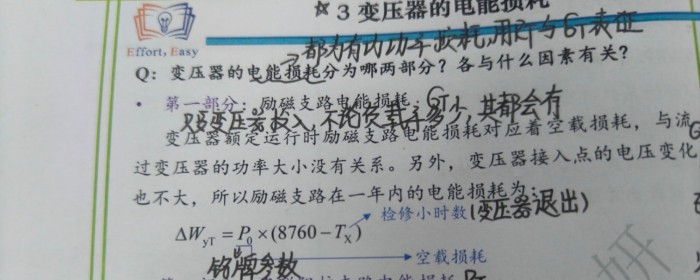 ☆3 变压器的电能损耗
Effort, Easy
→都为有功功率损耗,用RT与GT表征
Q:变压器的电能损耗分为哪两部分?各与什么因素有关?
• 第一部分:励磁支路电能损耗:GT
只要变压器投入,不论负载多少,其都会有
变压器额定运行时励磁支路电能损耗对应着空载损耗,与流
过变压器的功率大小没有关系。另外,变压器接入点的电压变化
也不大,所以励磁支路在一年内的电能损耗为:
检修小时数(变压器退出)
ΔWyT = P0×(8760−TX)
铭牌参数
空载损耗